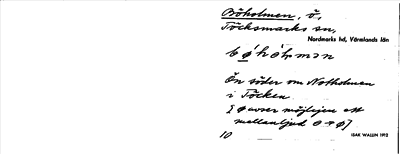 Böholmen, ö,
Töcksmarks sn,
Nordmarks hd, Värmlands län
Ön söder om Notholmen
i Töcken
[ø avser möjligen ett
mellanljud
10
ISAK WALLIN 1912